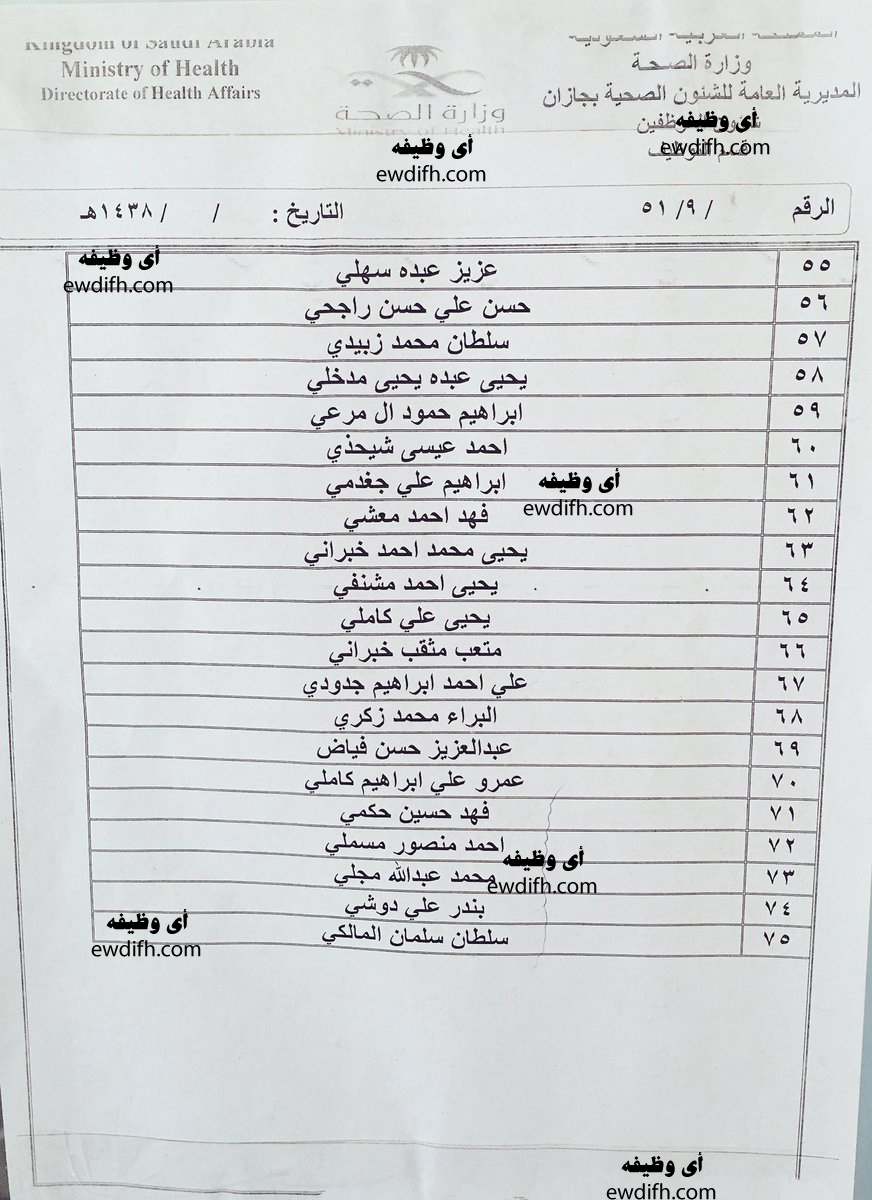 Kingdom of Saudi Arabia
Ministry of Health
Directorate of Health Affairs
وزارة الصحة
Ministry of Health
المملكة العربية السعودية
وزارة الصحة
المديرية العامة للشئون الصحية بجازان
أى وظيفه
ewdifh.com
أى وظيفه
ewdifh.com
الرقم / ٩/ ٥١ التاريخ : / / ١٤٣٨هـ
أى وظيفه
ewdifh.com
٥٥ عزيز عبده سهلي
٥٦ حسن علي حسن راجحي
٥٧ سلطان محمد زبيدي
٥٨ يحيى عبده يحيى مدخلي
٥٩ ابراهيم حمود ال مرعي
٦٠ احمد عيسى شيحذي
٦١ ابراهيم علي جغدمي
أى وظيفه
ewdifh.com
٦٢ فهد احمد معشي
٦٣ يحيى محمد احمد خبراني
٦٤ يحيى احمد مشنفي
٦٥ يحيى علي كاملي
٦٦ متعب مثقب خبراني
٦٧ علي احمد ابراهيم جدودي
٦٨ البراء محمد زكري
٦٩ عبدالعزيز حسن فياض
٧٠ عمرو علي ابراهيم كاملي
٧١ فهد حسين حكمي
٧٢ احمد منصور مسملي
أى وظيفه
ewdifh.com
٧٣ محمد عبدالله مجلي
٧٤ بندر علي دوشي
٧٥ سلطان سلمان المالكي
أى وظيفه
ewdifh.com
أى وظيفه
ewdifh.com